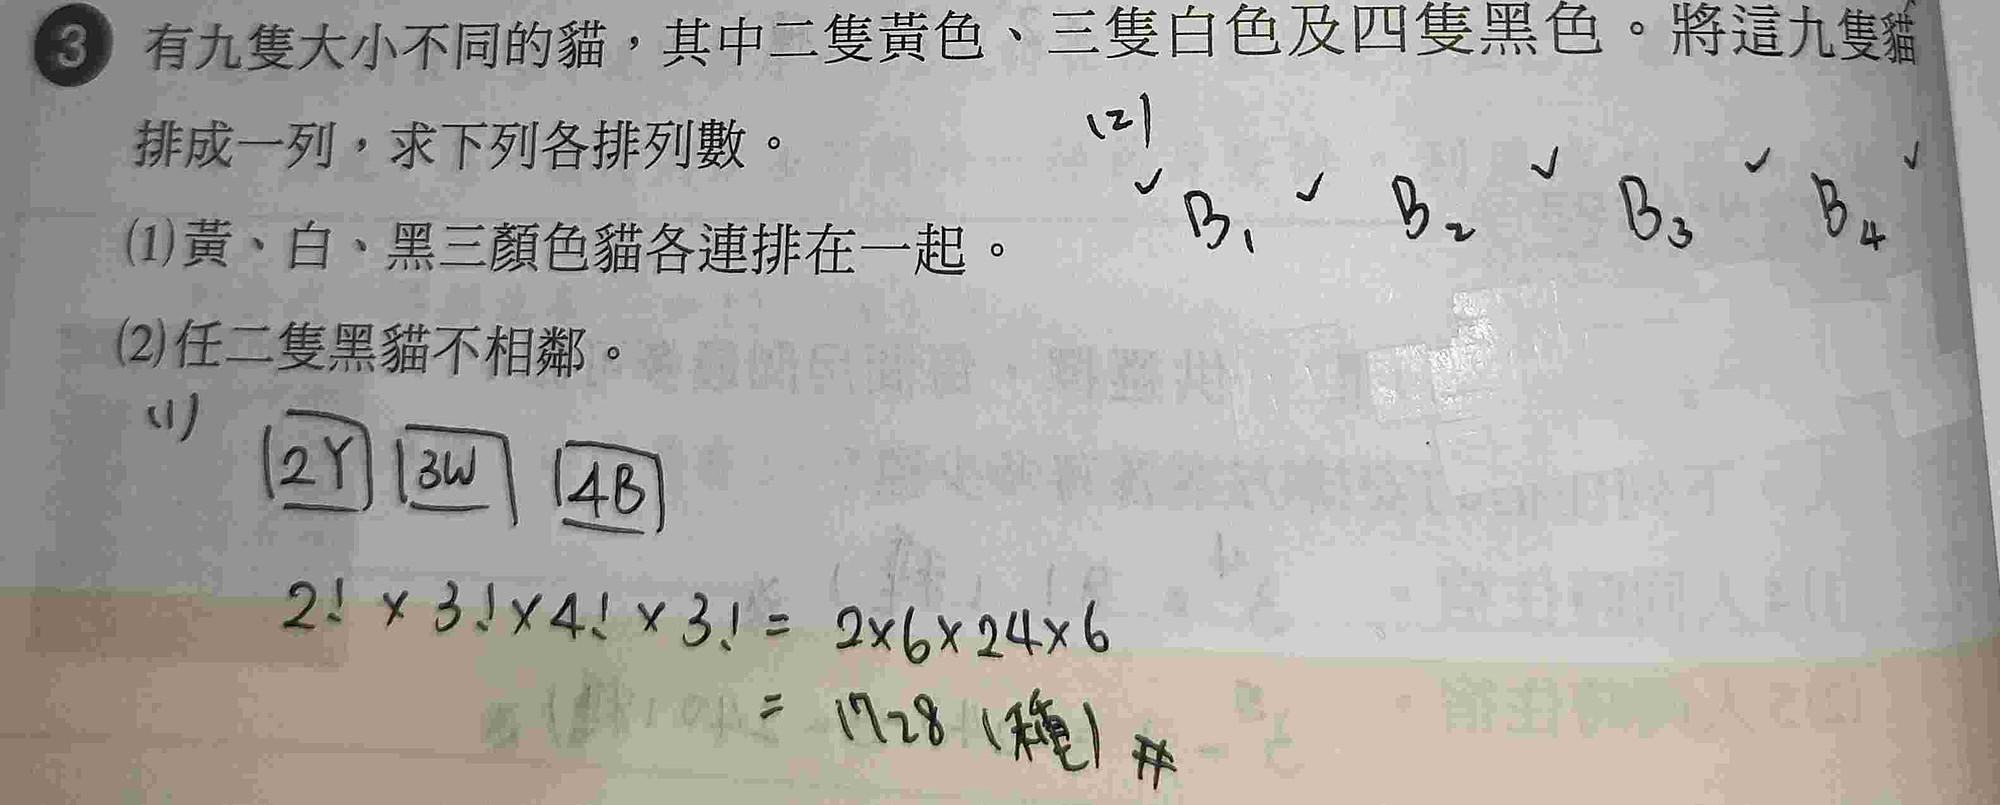 3 有九隻大小不同的貓，其中二隻黃色、三隻白色及四隻黑色。將這九隻貓
排成一列，求下列各排列數。
(1)黃、白、黑三顏色貓各連排在一起。
(2)任二隻黑貓不相鄰。
(2)
✓ B₁ ✓ B₂ ✓ B₃ ✓ B₄ ✓
(1)
2Y 3W 4B
2! × 3! × 4! × 3! = 2×6×24×6
= 1728 (種) #